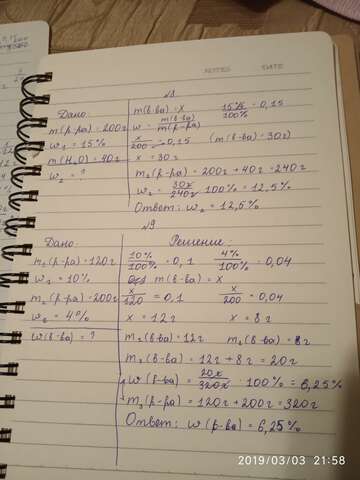 NOTES DATE
№8
Дано:
m(р-ра)=200г
w₁=15%
m(H₂O)=40г
w₂=?
m(в-ва)=x 15%/100%=0,15
w=m(в-ва)/m(р-ра)
x/200=0,15 (m(в-ва)=30г)
x=30г
m₂(р-ра)=200г+40г=240г
w₂=30г/240г·100%=12,5%
Ответ: w₂=12,5%
№9
Дано:
m₁(р-ра)=120г
w₁=10%
m₂(р-ра)=200г
w₂=4%
w(в-ва)=?
Решение:
10%/100%=0,1 4%/100%=0,04
m(в-ва)=x
x/120=0,1 x/200=0,04
x=12г x=8г
m₁(в-ва)=12г m₂(в-ва)=8г
m₃(в-ва)=12г+8г=20г
w(в-ва)=20г/320г·100%=6,25%
m₃(р-ра)=120г+200г=320г
Ответ: w(р-ва)=6,25%
2019/03/03 21:58